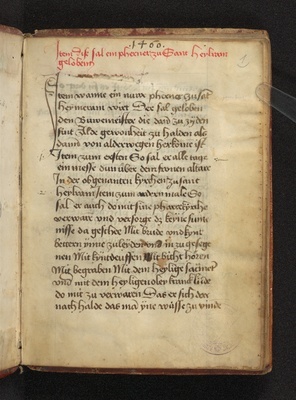 1460.
Item diß sal ein pherner zu Sant Heylram
geloben
Item wanne ein nuwer pherner zu sant
heymeram wirt Der sal geloben
den Buwemeister die da zu zyden
sint Alde gewonheit zu halden als
dann von alderwegen herkomē ist
Item zum ersten So sal er alle tage
ein messe dun uber dem fronen altare
In der obgenanten kyrchen zu sant
heylram Item zum andern male So
sal er auch do mit sine pharrekyrche
verware und versorge dz keyne sume
nisse da geschee Mit brude und kynt
bettern ynne zuleyden und in zu gesege
nen Mit kyndeuffen Mit bicht horen
Mit begraben Mit dem heylige sacmēt
und mit dem heyligen oley krancke lude
do mit zu verwaren Das er sich dar
nach halde das mā yne wusse zu vinde